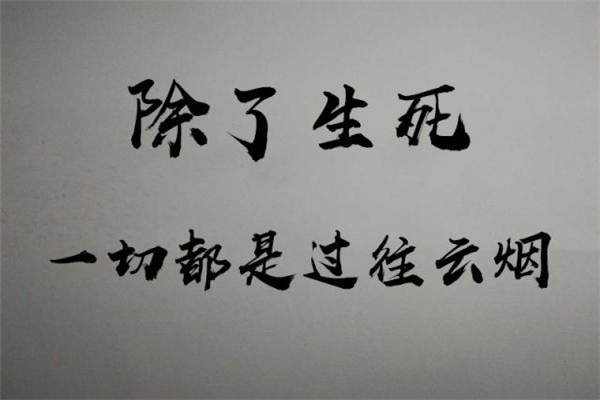 除了生死
一切都是过往云烟